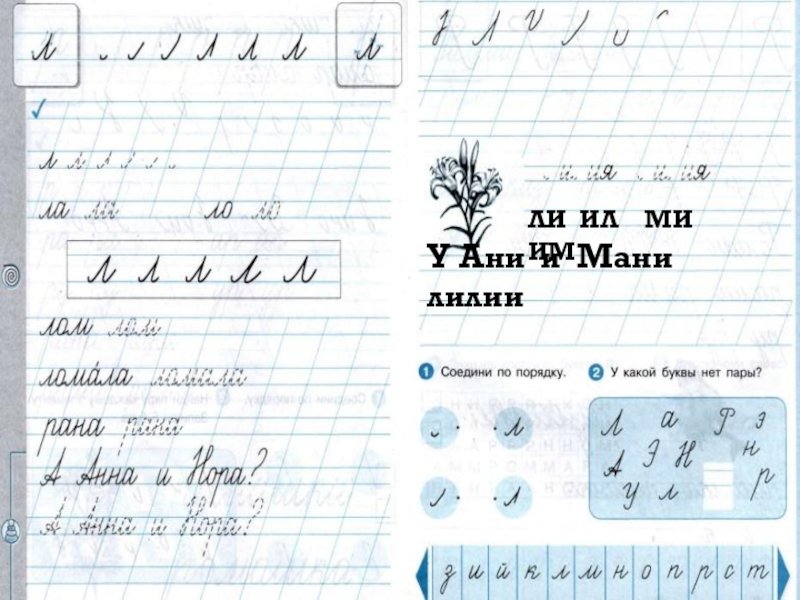 л л л л л
л л л
ла ла ло ло
л л л л л
лом лом
ломáла ломала
рана рана
А Анна и Нора?
А Анна и Нора?
лилия лилия
ли ил ми
им
У Ани и Мани
лилии
1 Соедини по порядку.
2 У какой буквы нет пары?
л
л
Л а Р э
А Э Н н
У л р
з и й к л м н о п р с т